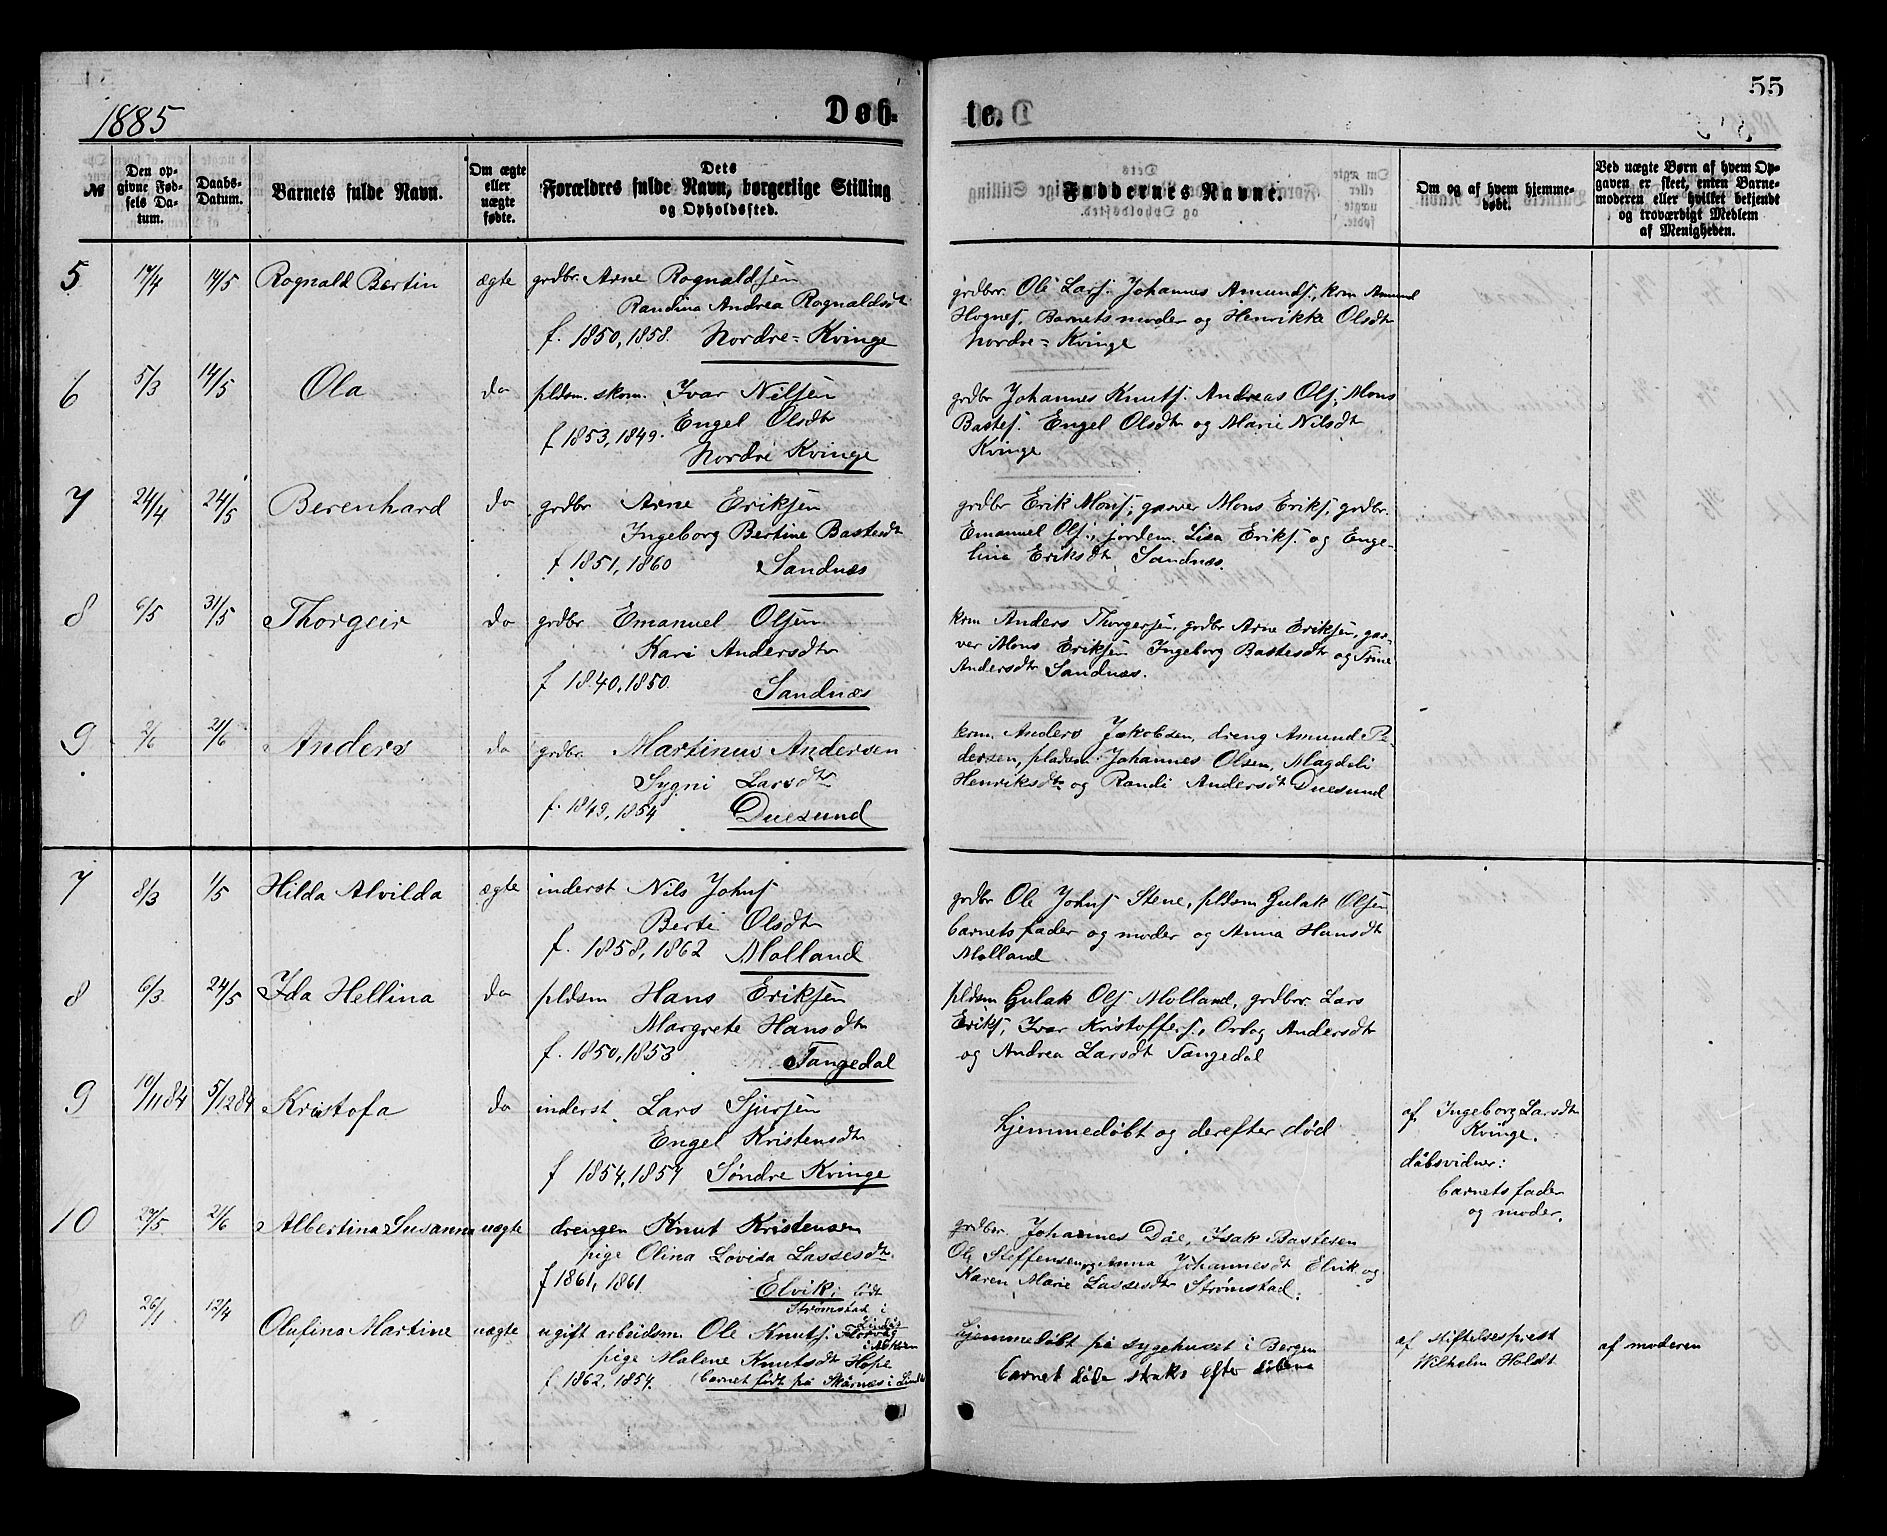 1885
Døb-
te.
55
№
Den op-
givne Fød-
sels Da-
tum.
Daabs-
Datum.
Barnets fulde Navn.
Om ægte
eller
uægte
fødte.
Dets
Forældres fulde Navn, borgerlige Stilling
og Opholdssted.
Faddernes Navne.
Om og af hvem hjemme-
døbt.
Ved uægte Børn af hvem Op-
gaven er skeet, enten Barne-
moderen eller hvilket bekjendt
og troværdigt Medlem
af Menigheden.
5 17/4 14/5 Rognald Bertin ægte grdbr. Arne Rognaldsen
Randina Andrea Rognaldsdt
f. 1850, 1858. Nordre-Kvinge
grdbrr. Ole Lars. Johannes Amunds., krm Amund
Hognes. Barnets moder og Henrikke Olsdtr
Nordre-Kvinge
6 5/3 14/5 Ola do pldsm. skom. Ivar Nilsen
f 1853, 1849. Engel Olsdtr
Nordre Kvinge
grdbr Johannes Knuts. Andreas Ols, Mons
Bastes. Engel Olsdtr og Marie Nilsdtr
Kvinge
7 24/4 24/5 Berenhard do grdbr Arne Eriksen
Ingeborg Bertine Bastesdtr
f 1851, 1860 Sandnæs
grdbr Erik Mons, garver Mons Eriks, grdbr.
Emanuel Ols., jordem. Lisa Eriks. og Enge-
lina Eriksdtr Sandnæs.
8 6/5 31/5 Thorgeir do grdbr Emanuel Olsen
Kari Andersdtr
f 1840, 1850. Sandnæs
krm Anders Thorgersen, grdbr Arne Eriksen, gar-
ver Mons Eriksen Ingeborg Bastesdtr og Trine
Andersdtr Sandnæs.
9 2/6 21/6 Anders do grdbr. Martinus Andersen
Sygni Larsdtr
f. 1849, 1854 Duesund
krm. Anders Jakobsen, dreng Amund Pe-
dersen, pladsm. Johannes Olsen, Magdeli
Henriksdtr og Randi Andersdt Duesund
7 8/3 1/5 Hilda Alvilda ægte inderst Nils Johns
Berte Olsdtr
f. 1858, 1862 Molland
grdbr Ole Johns Stene, pldsm Gulak Olsen
barnets fader og moder og Anna Hansdtr
Molland
8 6/3 24/5 Ida Hellina do pldsm Hans Eriksen
Margrete Hansdtr
f. 1850, 1853 Tangedal
pldsm Gulak Ols Molland, grdbrr. Lars
Eriks, Ivar Kristoffers., Andersdtr
og Andrea Larsdt Tangedal
9 10/11 84 5/12 84 Kristofa do inderst Lars Sjursen
Engel Kristensdtr
f 1854, 1857 Søndre Kvinge
hjemmedøbt og derefter død
af Ingeborg Larsdtr
Kvinge.
dåbsvidner:
barnets fader
og moder.
10 27/5 21/6 Albertina Susanna uægte drengen Knut Kristensen
pige Olina Lovida Lassesdtr
f 1861, 1861. Elvik; født
Strømstad i
grdbr. Johannes Dåe, Isak Bastesen
Ole Steffensen, Anna Johannesdt Elvik og
Karen Marie Lassesdtr Strømstad.
0 26/1 12/4 Olufina Martine uægte ugift arbeidsm. Ole Knuts.
pige Malene Knutsdt Hope
f 1862, 1854. (barnet født på Skårnæs i
hjemmedøbt på sygehuset i Bergen
barnet døde straks efter dåben
af Stiftelsesprest
Wilhelm Holdt
af moderen